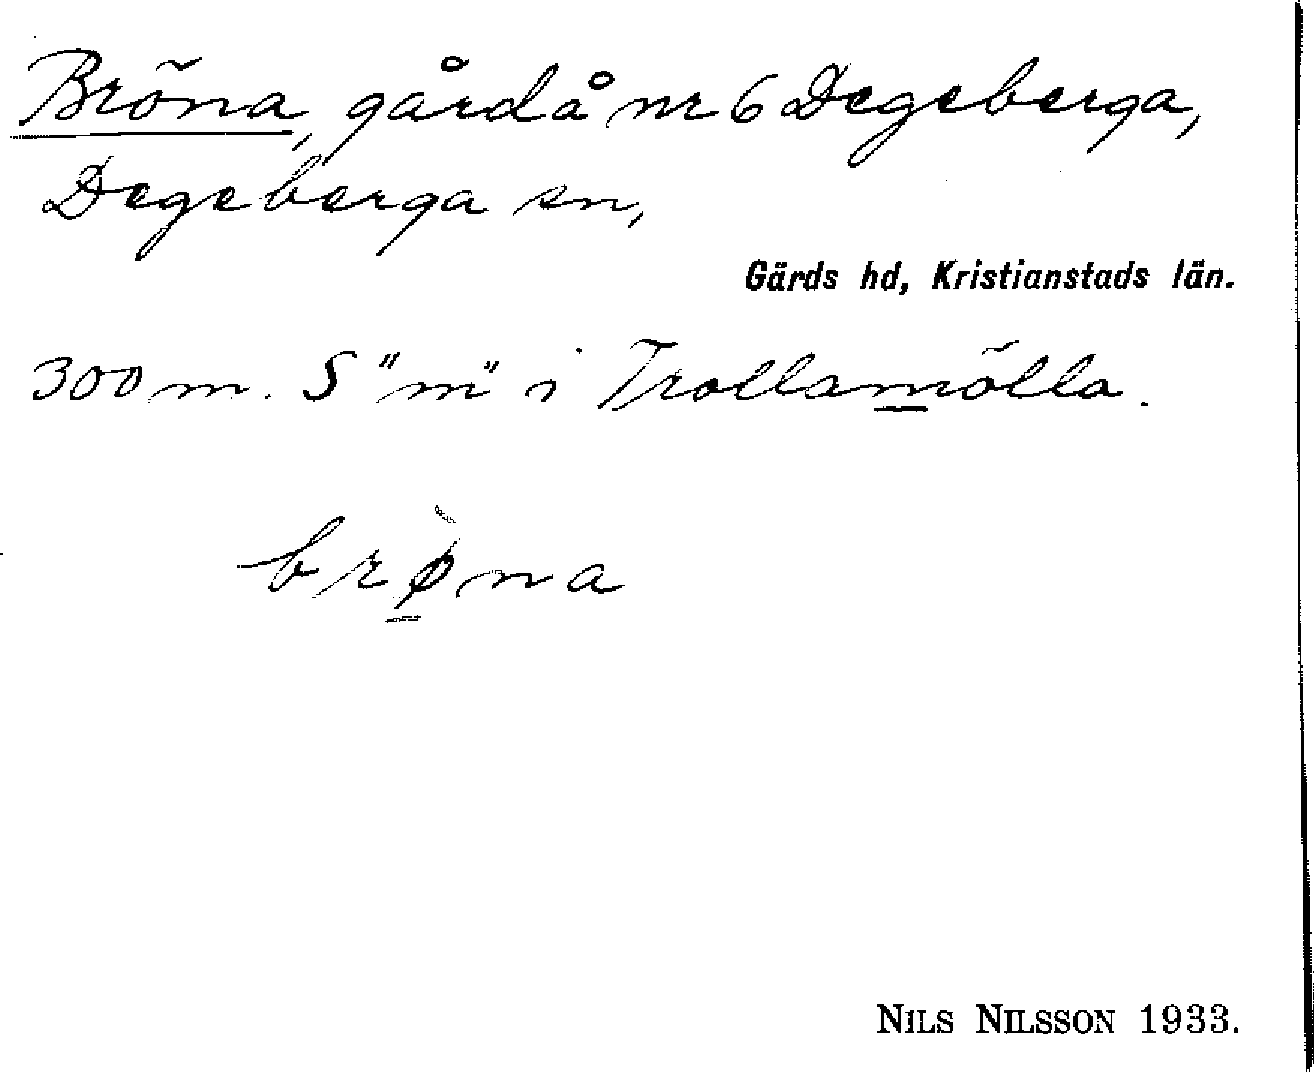 Bröna, gård å nr 6 Degeberga,
Degeberga sn,
Gärds hd, Kristianstads län.
300 m. S "m" i Trollamölla.
brø̀na
NILS NILSSON 1933.